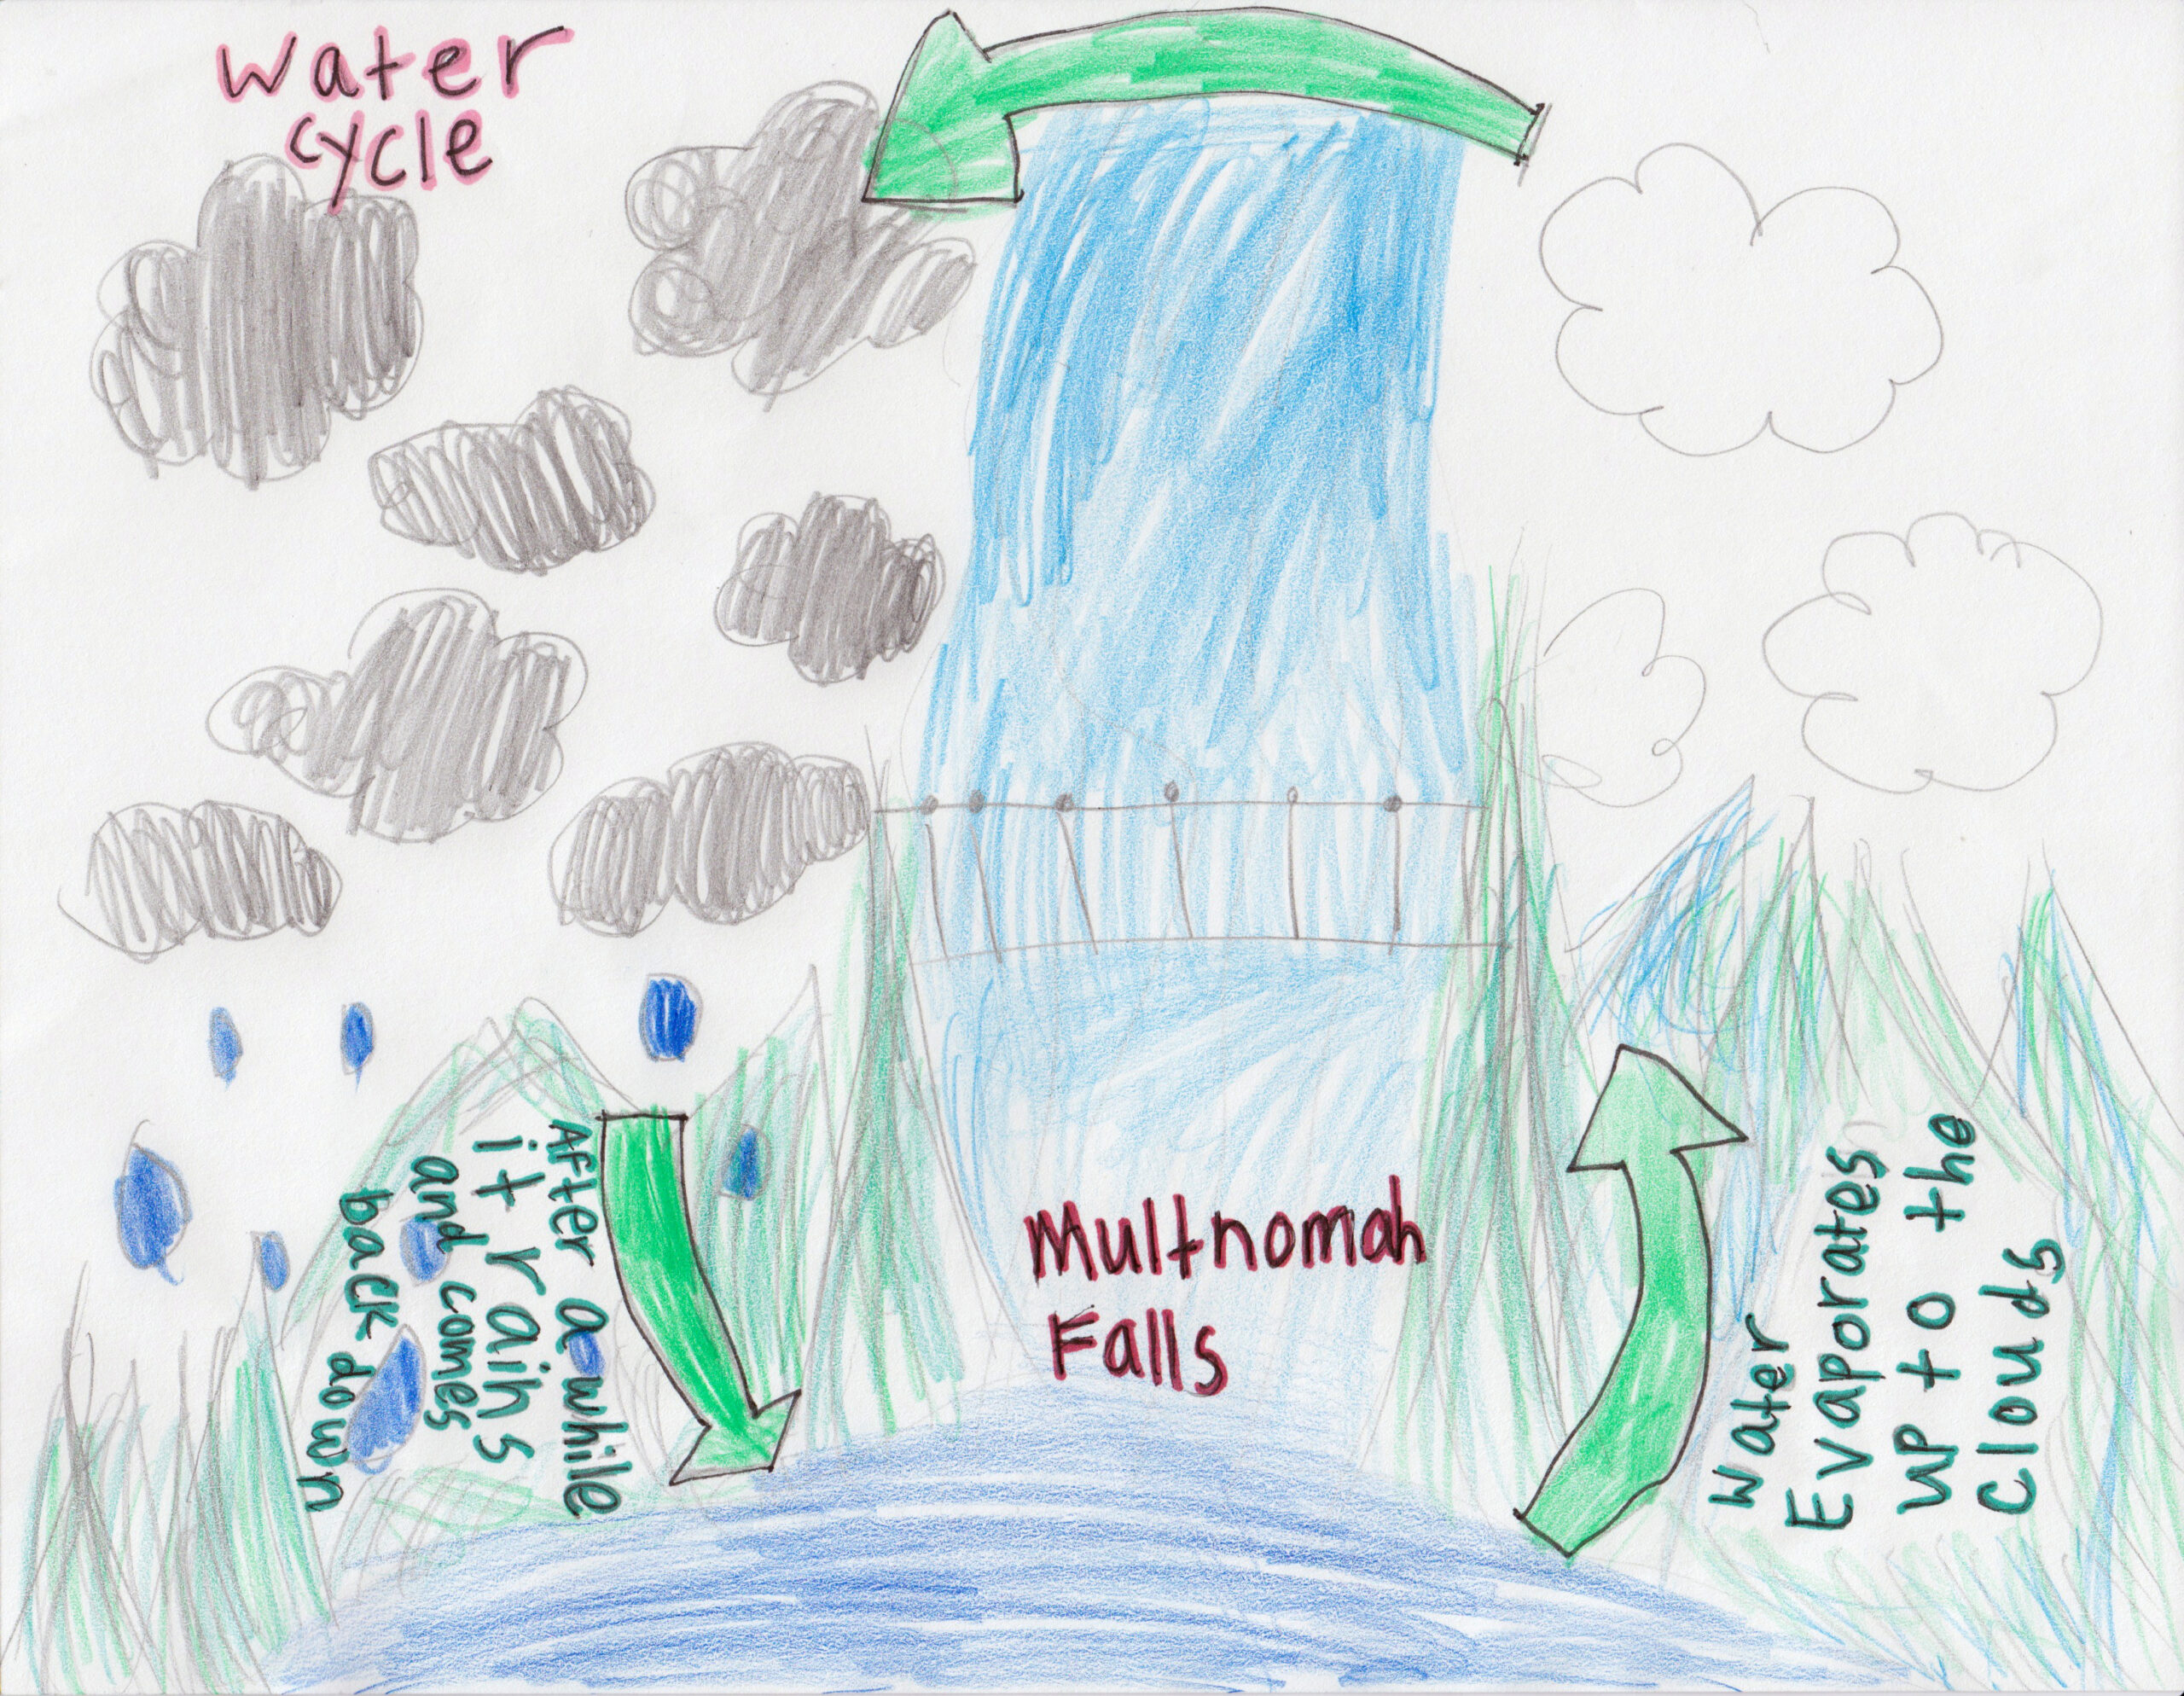 Water
cycle
After awhile
it rains
and comes
back down
Multnomah
Falls
Water
Evaporates
up to the
Clouds